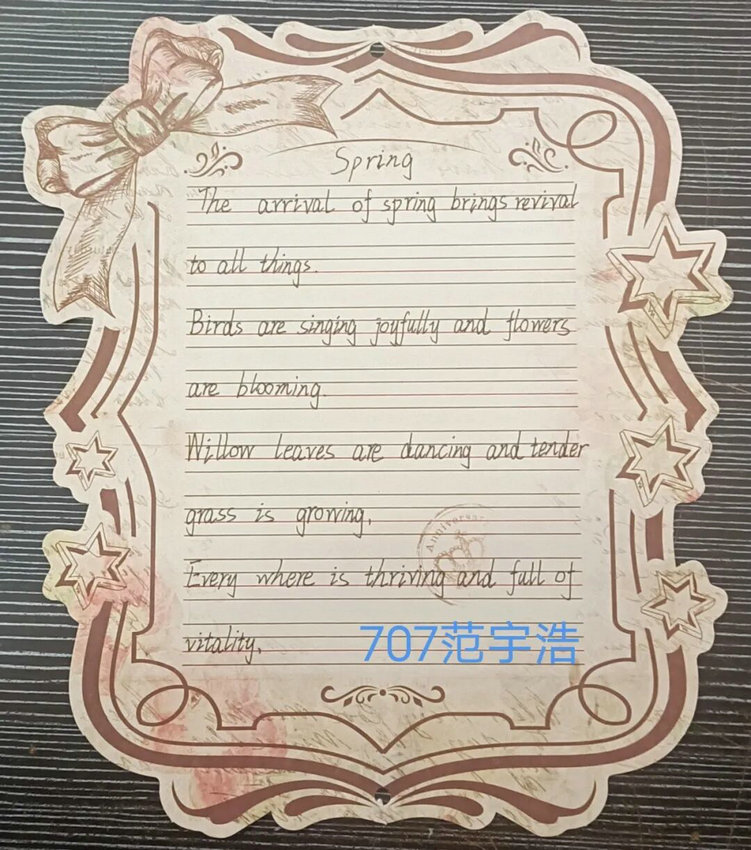 Spring
The arrival of spring brings revival
to all things.
Birds are singing joyfully and flowers
are blooming.
Willow leaves are dancing and tender
grass is growing,
Anniversary
Every where is thriving and full of
vitality,
707范宇浩